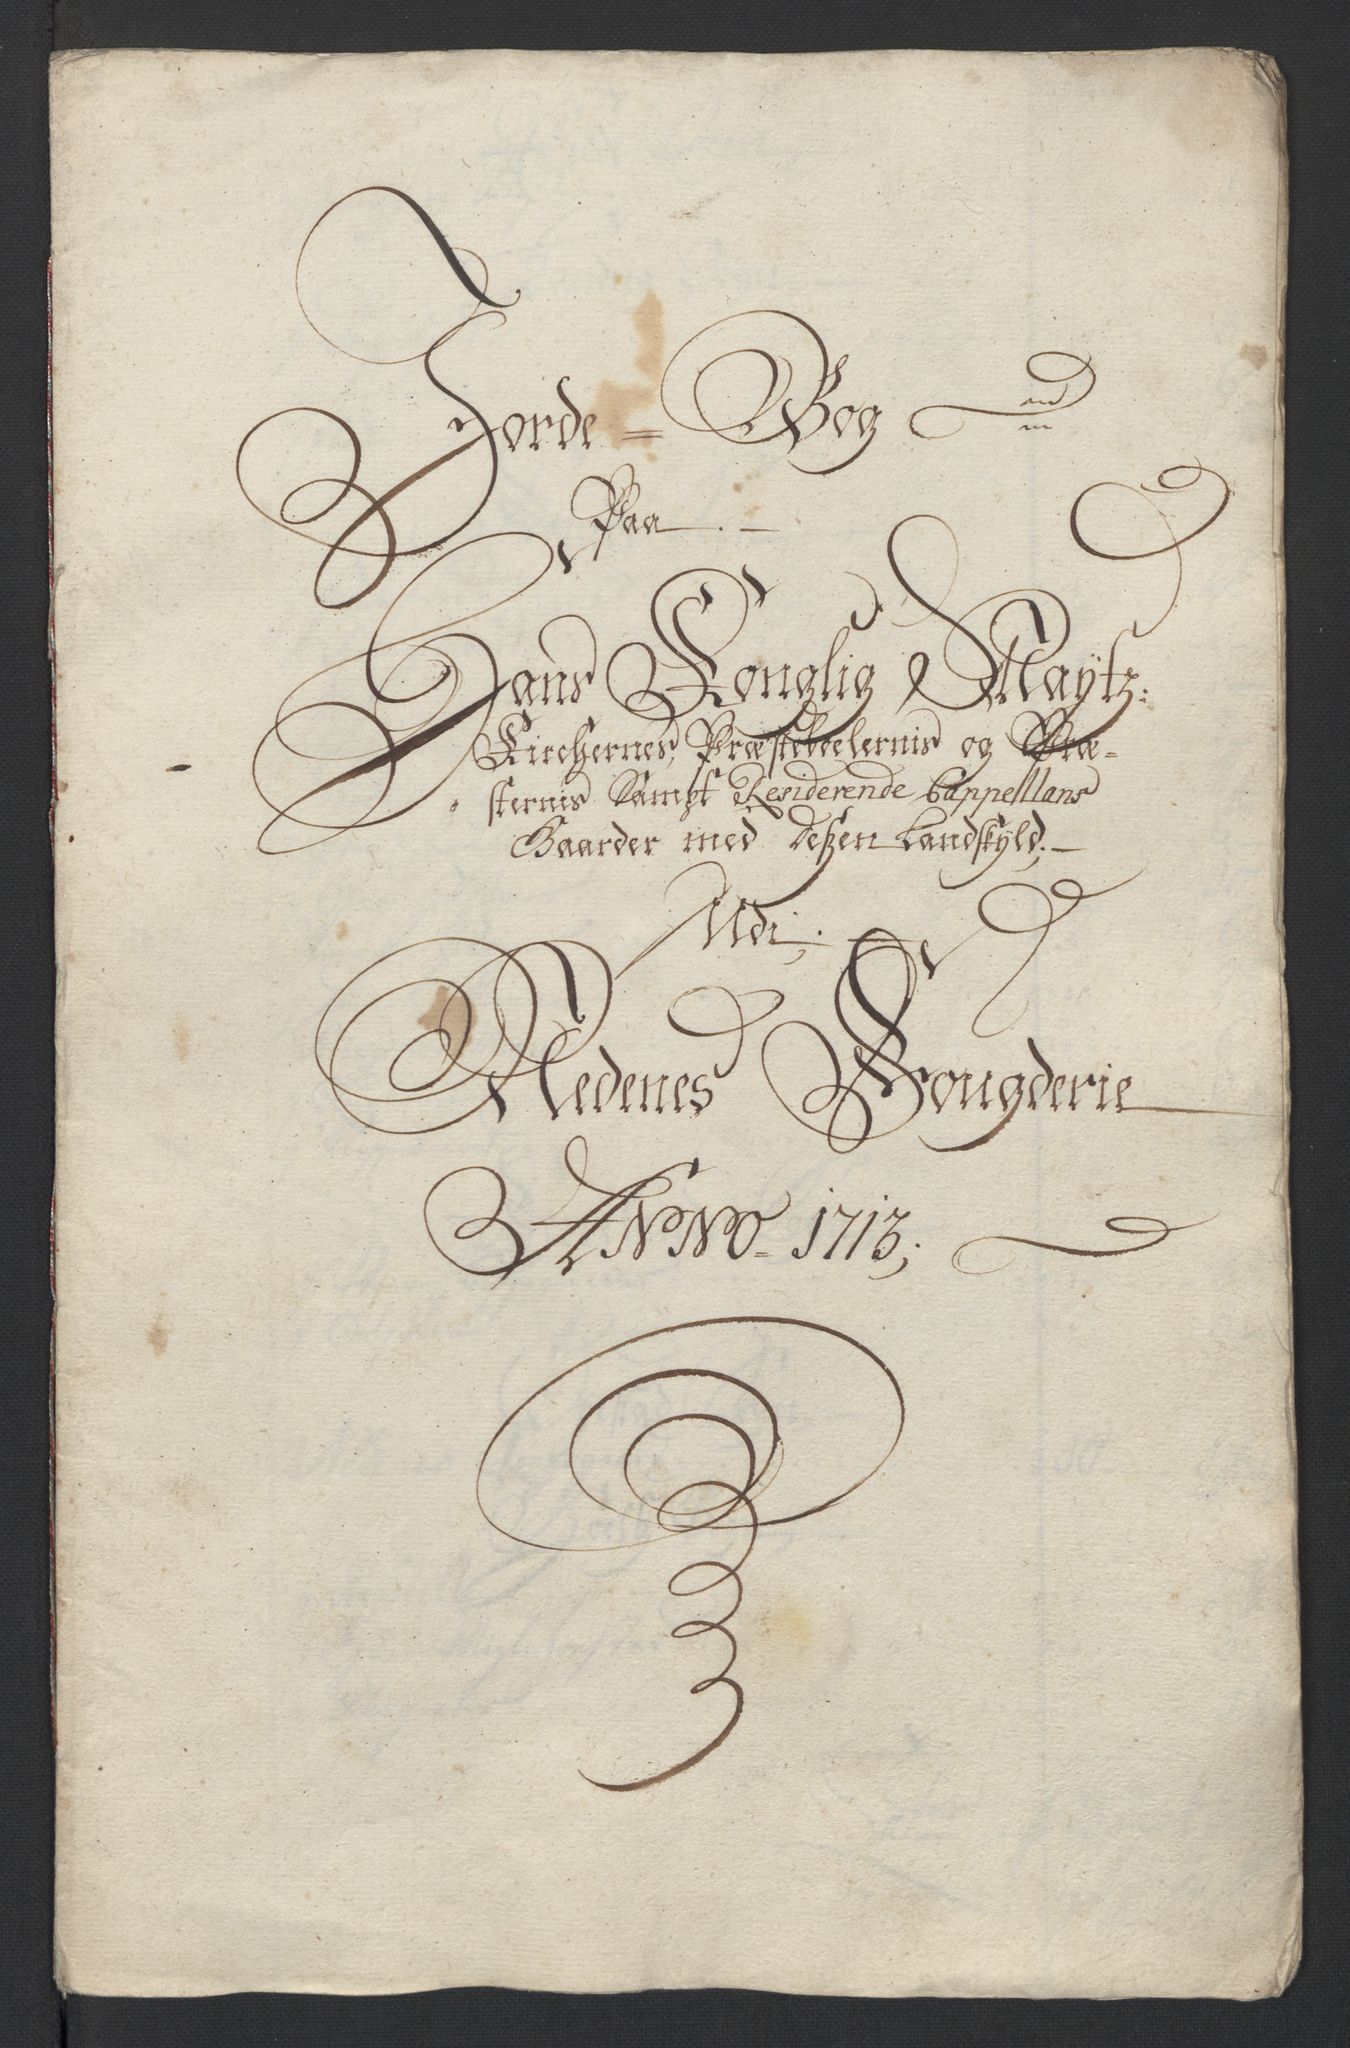 Jorde = Bog
Paa.
Hans Konglig Maÿtz:
Kirchernes, Præstebolernis og Præ-
sternis Sampt Residerende Cappellans
Gaarder med deßen Landskÿld;
Udi;
Nedenes Fougderie
ANNO 1713;